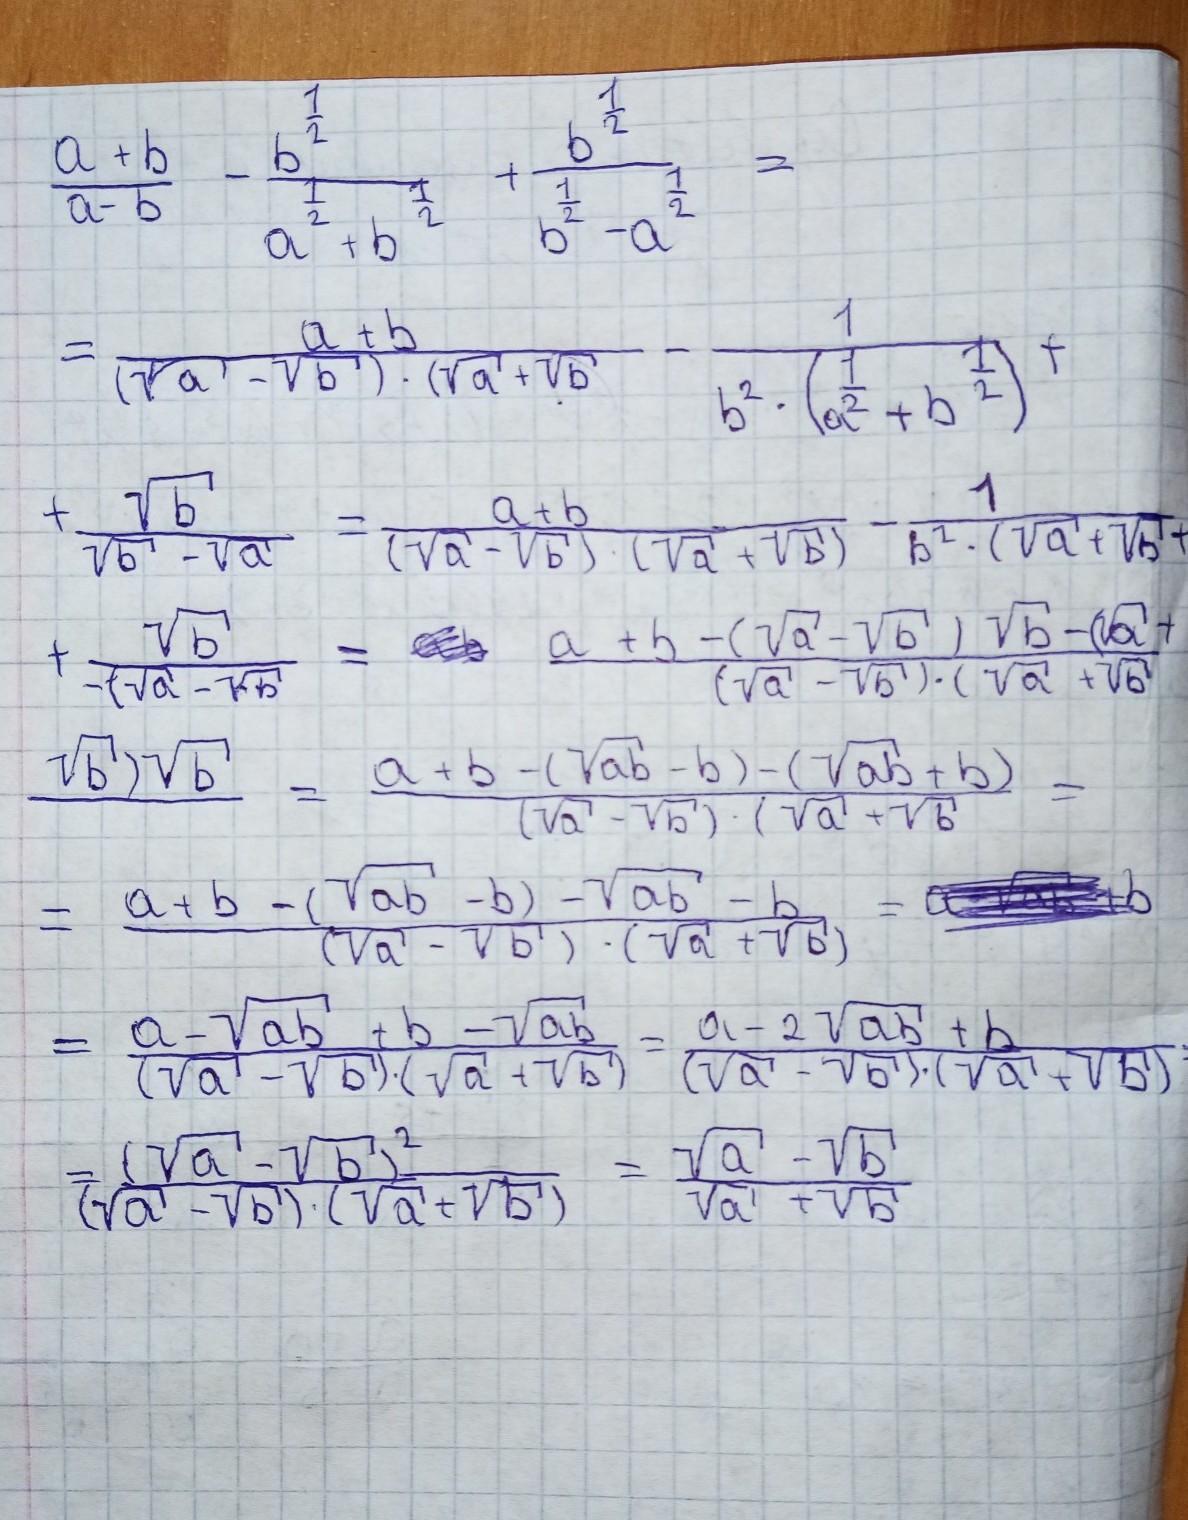 (a + b)/(a - b) - b^(1/2)/(a^(1/2) + b^(1/2)) + b^(1/2)/(b^(1/2) - a^(1/2)) =
= (a + b)/((√a - √b) · (√a + √b) - 1/(b² · (a^(1/2) + b^(1/2))) +
+ √b/(√b - √a) = (a + b)/((√a - √b) · (√a + √b)) - 1/(b² · (√a + √b +
+ √b/(-(√a - √b) = (a + b - (√a - √b) √b - (√a +)/((√a - √b) · (√a + √b)
√b) √b = (a + b - (√ab - b) - (√ab + b))/((√a - √b) · (√a + √b) =
= (a + b - (√ab - b) - √ab - b)/((√a - √b) · (√a + √b)) =
= (a - √ab + b - √ab)/((√a - √b) · (√a + √b)) = (a - 2√ab + b)/((√a - √b) · (√a + √b)) =
= (√a - √b)²/((√a - √b) · (√a + √b)) = (√a - √b)/(√a + √b)